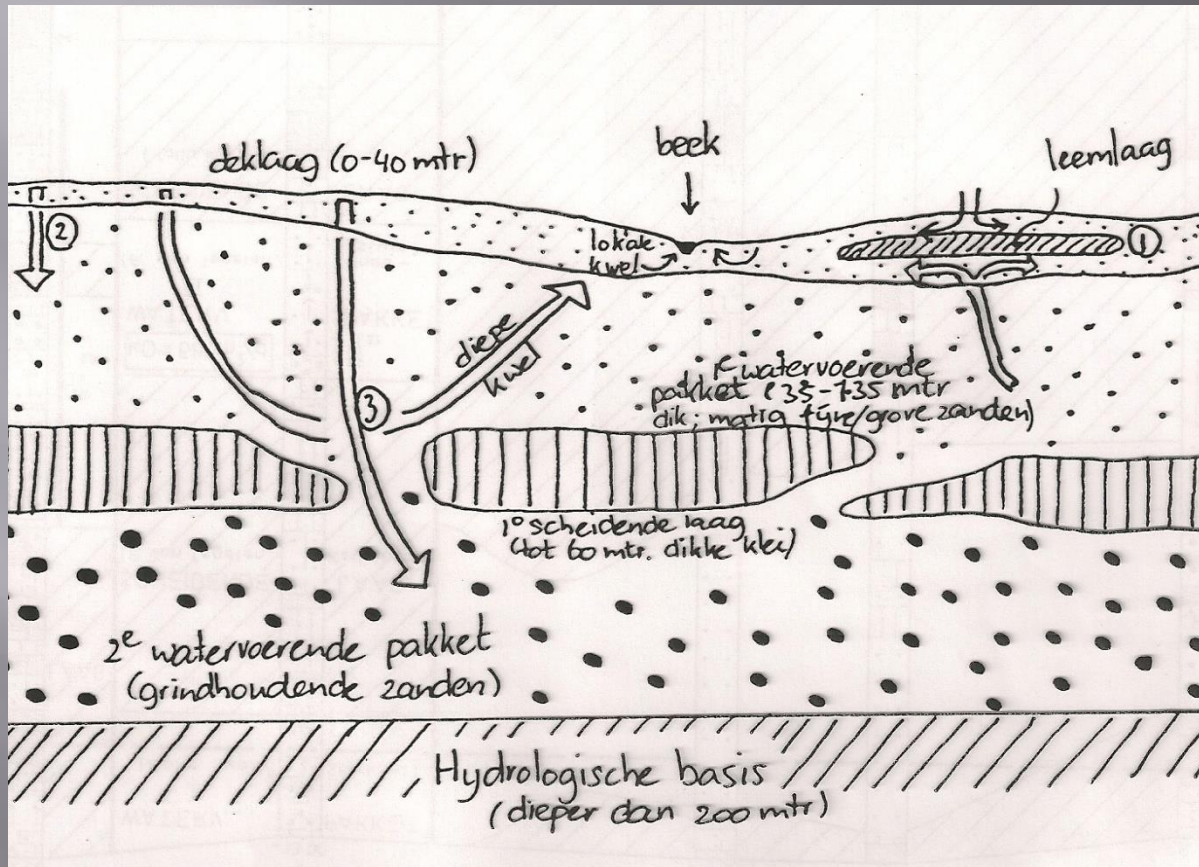 deklaag (0-40 mtr)
beek
leemlaag
2
lokale
kwel
1
diepe
kwel
3
1e watervoerende
pakket (35-135 mtr
dik; matig fijne/grove zanden)
1e scheidende laag
(tot 60 mtr. dikke klei)
2e watervoerende pakket
(grindhoudende zanden)
Hydrologische basis
(dieper dan 200 mtr)